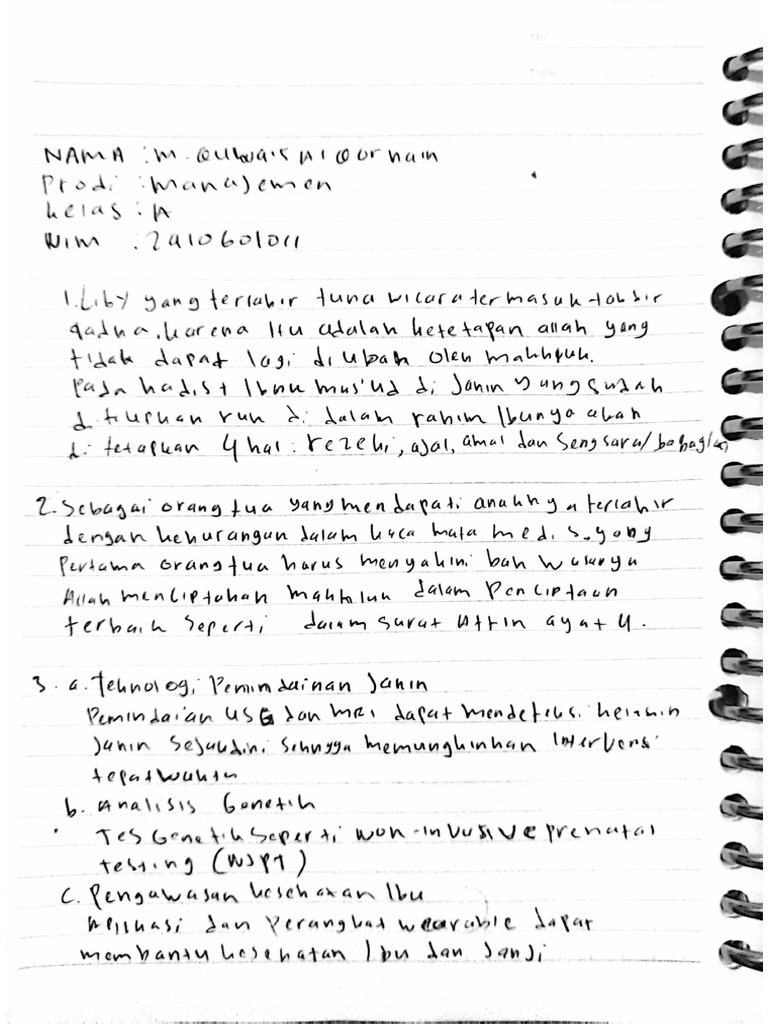 No
Date
NAMA : M. Quwais Al Qurnain
Prodi : Manajemen
Kelas : A
NIM : 2410601011
1. Liby yang terlahir tuna wicara termasuk takdir
qadha, karena itu adalah ketetapan allah yang
tidak dapat lagi di ubah oleh makhluk.
Pada hadist Ibnu mus'ud di Janin yang sudah
di tiupkan ruh di dalam rahim Ibunya akan
di tetapkan 4 hal : rezeki, ajal, amal dan sengsara/bahagia
2. Sebagai orang tua yang mendapati anaknya terlahir
dengan kekurangan dalam kaca mata medis, yang
Pertama orang tua harus menyakini bahwasanya
Allah menciptakan makhluk dalam Penciptaan
terbaik seperti dalam surat Attin ayat 4.
3. a. Teknologi Pemindainan Janin
Pemindaian USG dan MRI dapat mendeteksi kelainin
Janin sejak dini sehingga memungkinkan Intervensi
tepat waktu
b. Analisis Genetik
Tes Genetik seperti non-invasive prenatal
testing (NIPT)
c. Pengawasan kesehatan Ibu
Aplikasi dan Perangkat wearable dapat
membantu kesehatan Ibu dan Janji